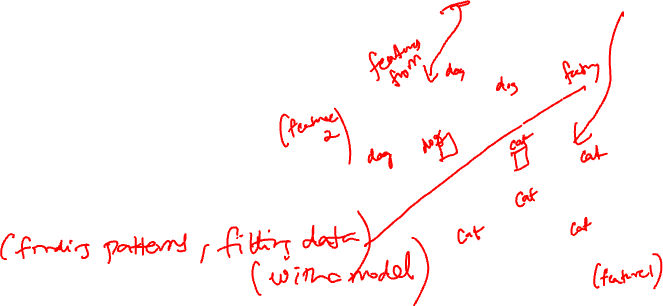 features
from
dog dog
(feature
2)
dog dog cat cat
cat
(finding patterns, fitting data)
cat cat
(with a model)
(feature1)